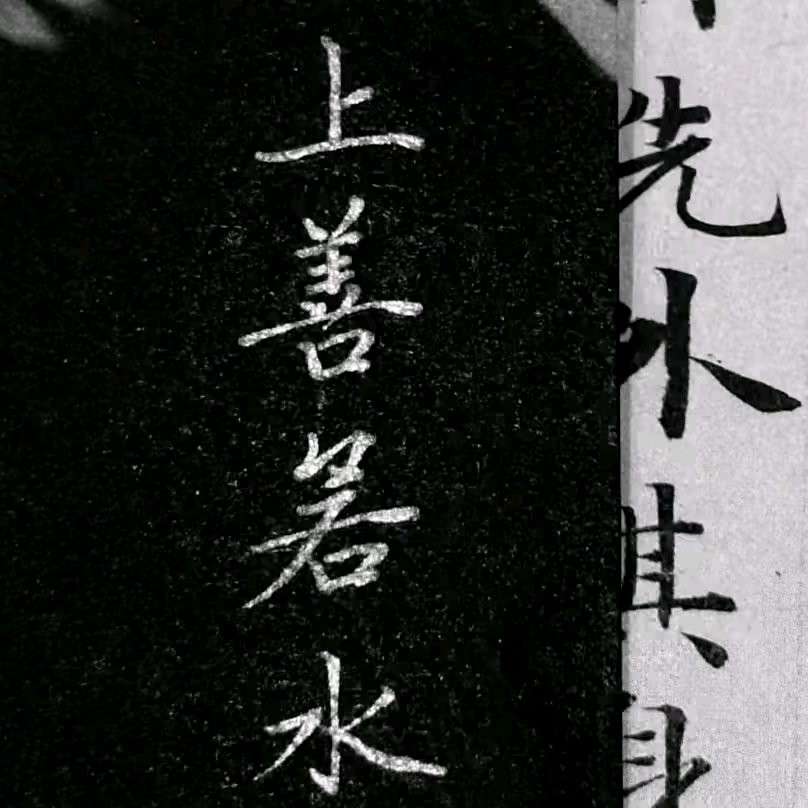 先外其身
上善若水